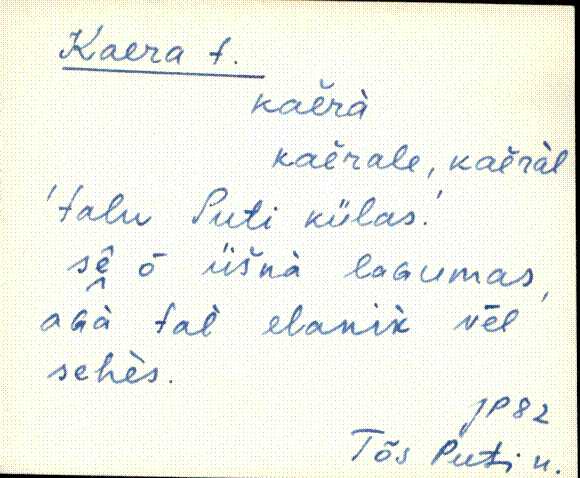 Kaera t.
kaĕrà
kaĕrale, kaĕràl
'talu Puti külas.'
sê ō üšnà laGumas,
aGà tal elanìk vēl
sehès.
JP82
Tõs Puti n.